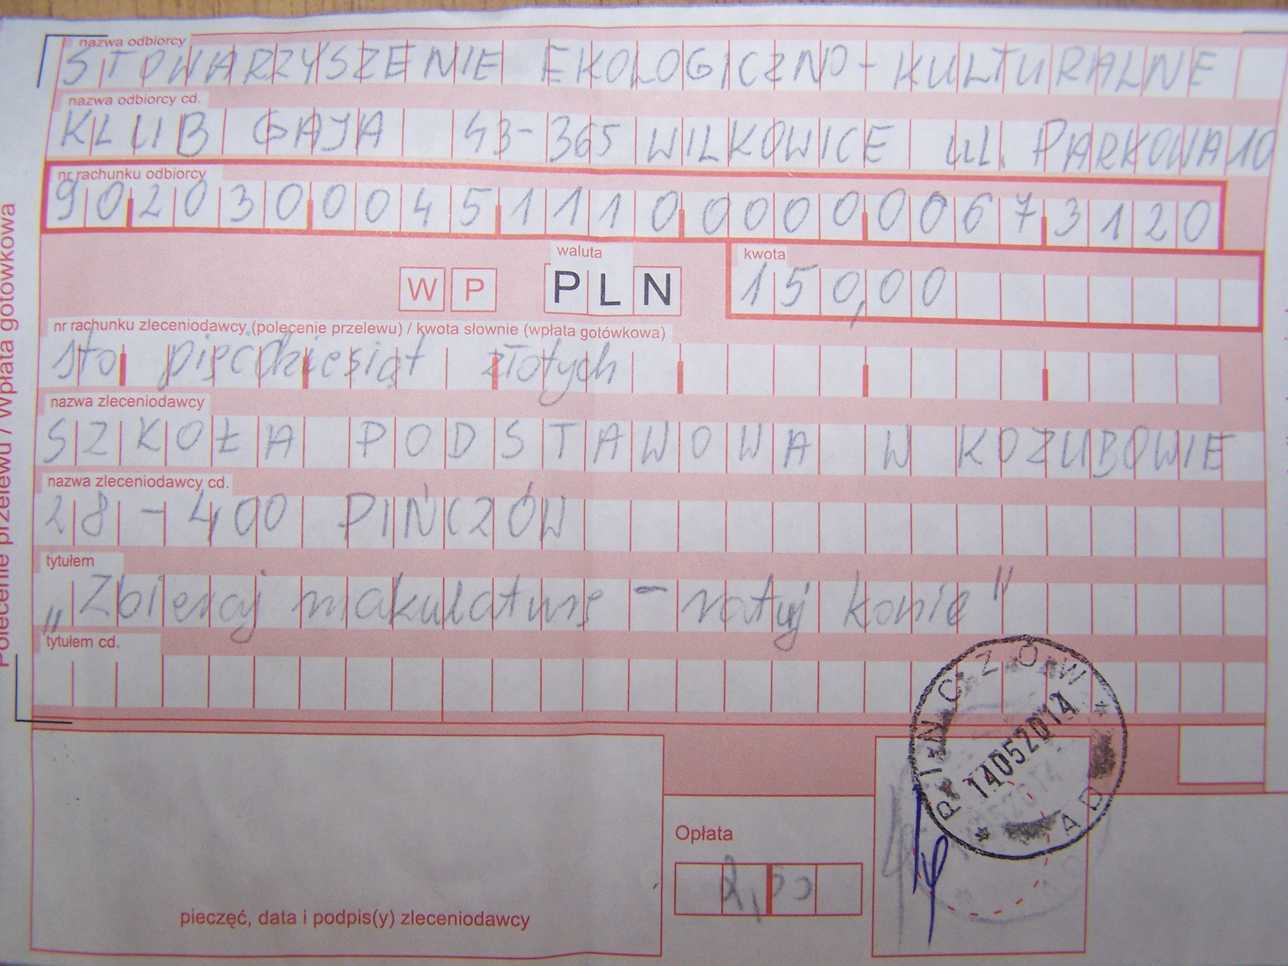 nazwa odbiorcy
STOWARZYSZENIE EKOLOGICZNO-KULTURALNE
nazwa odbiorcy cd.
KLUB GAJA 43-365 WILKOWICE UL. PARKOWA 10
nr rachunku odbiorcy
90203000451110000000673120
waluta
kwota
WP PLN 150,00
nr rachunku zleceniodawcy (polecenie przelewu) / kwota słownie (wpłata gotówkowa)
sto pięćdziesiąt złotych
nazwa zleceniodawcy
SZKOŁA PODSTAWOWA W KOZUBOWIE
nazwa zleceniodawcy cd.
28-400 PIŃCZÓW
tytułem
„Zbieraj makulaturę - ratuj konie"
tytułem cd.
Polecenie przelewu / Wpłata gotówkowa
PIŃCZÓW
14052014
AD
Opłata
pieczęć, data i podpis(y) zleceniodawcy